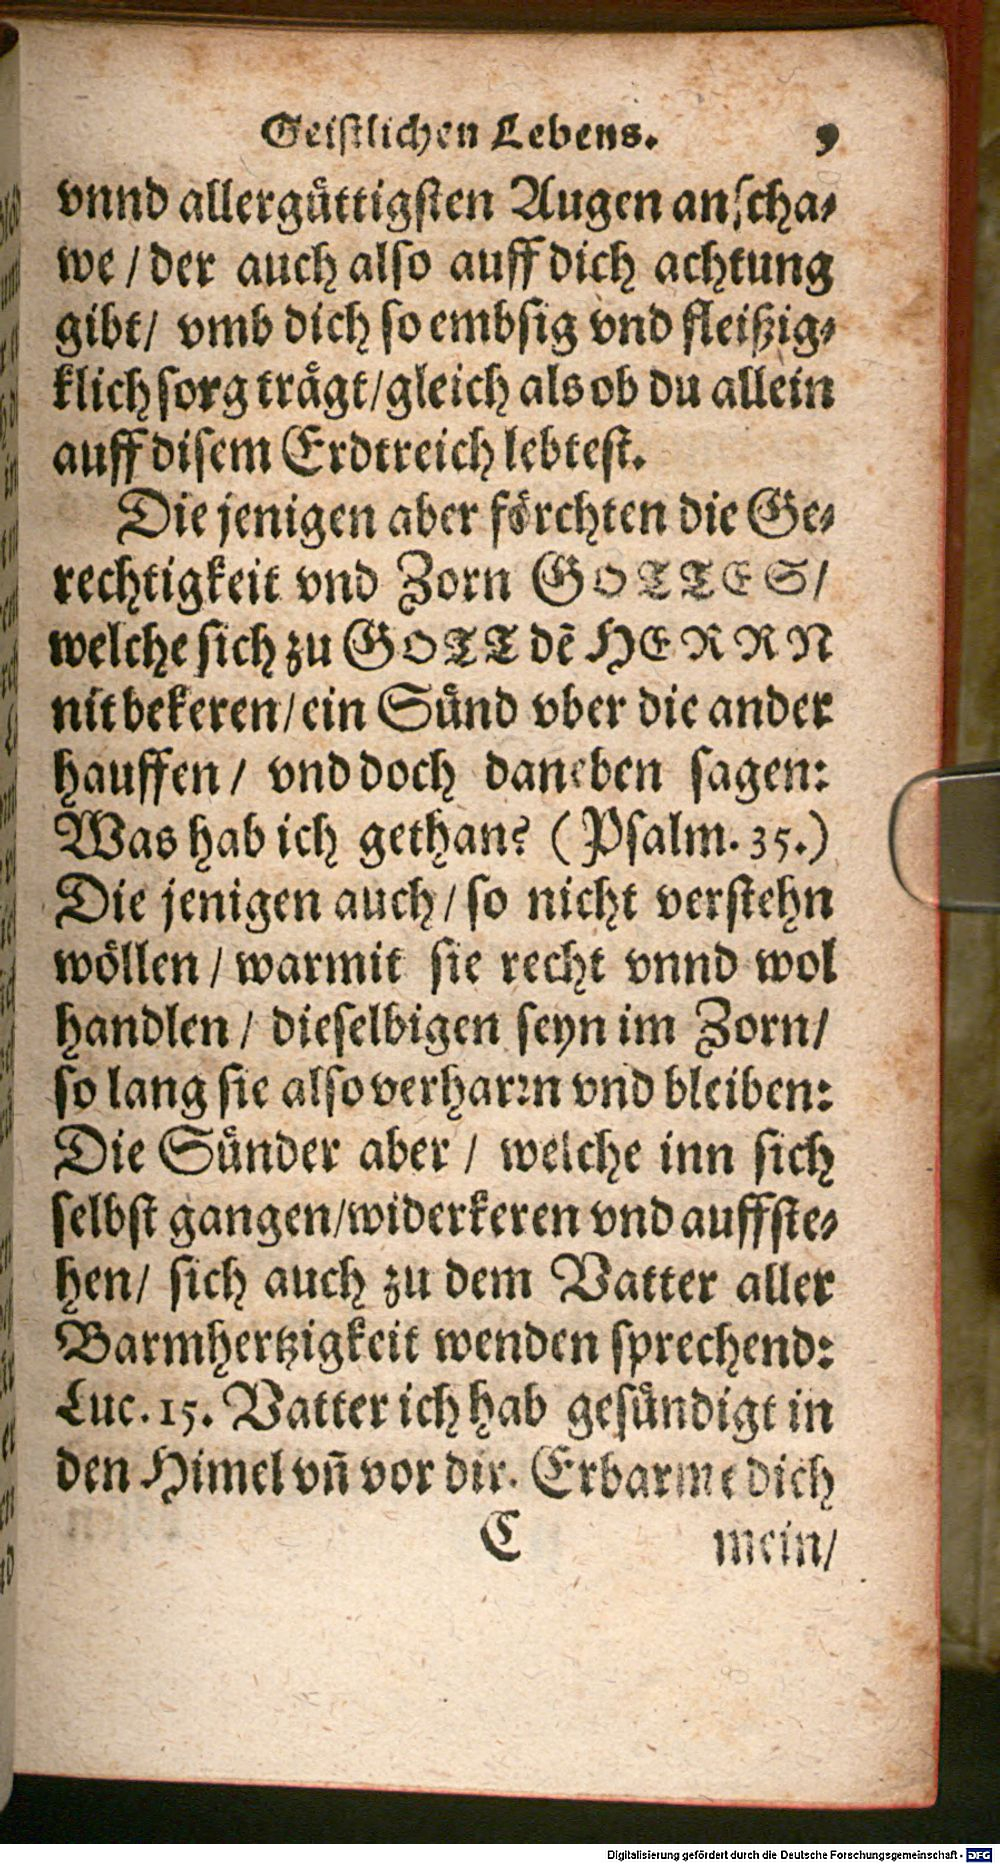 Geistlichen Lebens. 9
vnnd allergüttigsten Augen anscha⸗
we / der auch also auff dich achtung
gibt / vmb dich so embsig vnd fleißig⸗
klich sorg trägt / gleich als ob du allein
auff disem Erdtreich lebtest.
Die jenigen aber förchten die Ge⸗
rechtigkeit vnd Zorn GOTTES /
welche sich zu GOTT dẽ HERRN
nit bekeren / ein Sünd vber die ander
hauffen / vnd doch daneben sagen:
Was hab ich gethan? (Psalm. 35.)
Die jenigen auch / so nicht verstehn
wöllen / warmit sie recht vnnd wol
handlen / dieselbigen seyn im Zorn /
so lang sie also verharꝛn vnd bleiben:
Die Sünder aber / welche inn sich
selbst gangen / widerkeren vnd auffste⸗
hen / sich auch zu dem Vatter aller
Barmhertzigkeit wenden sprechend:
Luc. 15. Vatter ich hab gesündigt in
den Himel vñ vor dir. Erbarme dich
C mein /
Digitalisierung gefördert durch die Deutsche Forschungsgemeinschaft - DFG